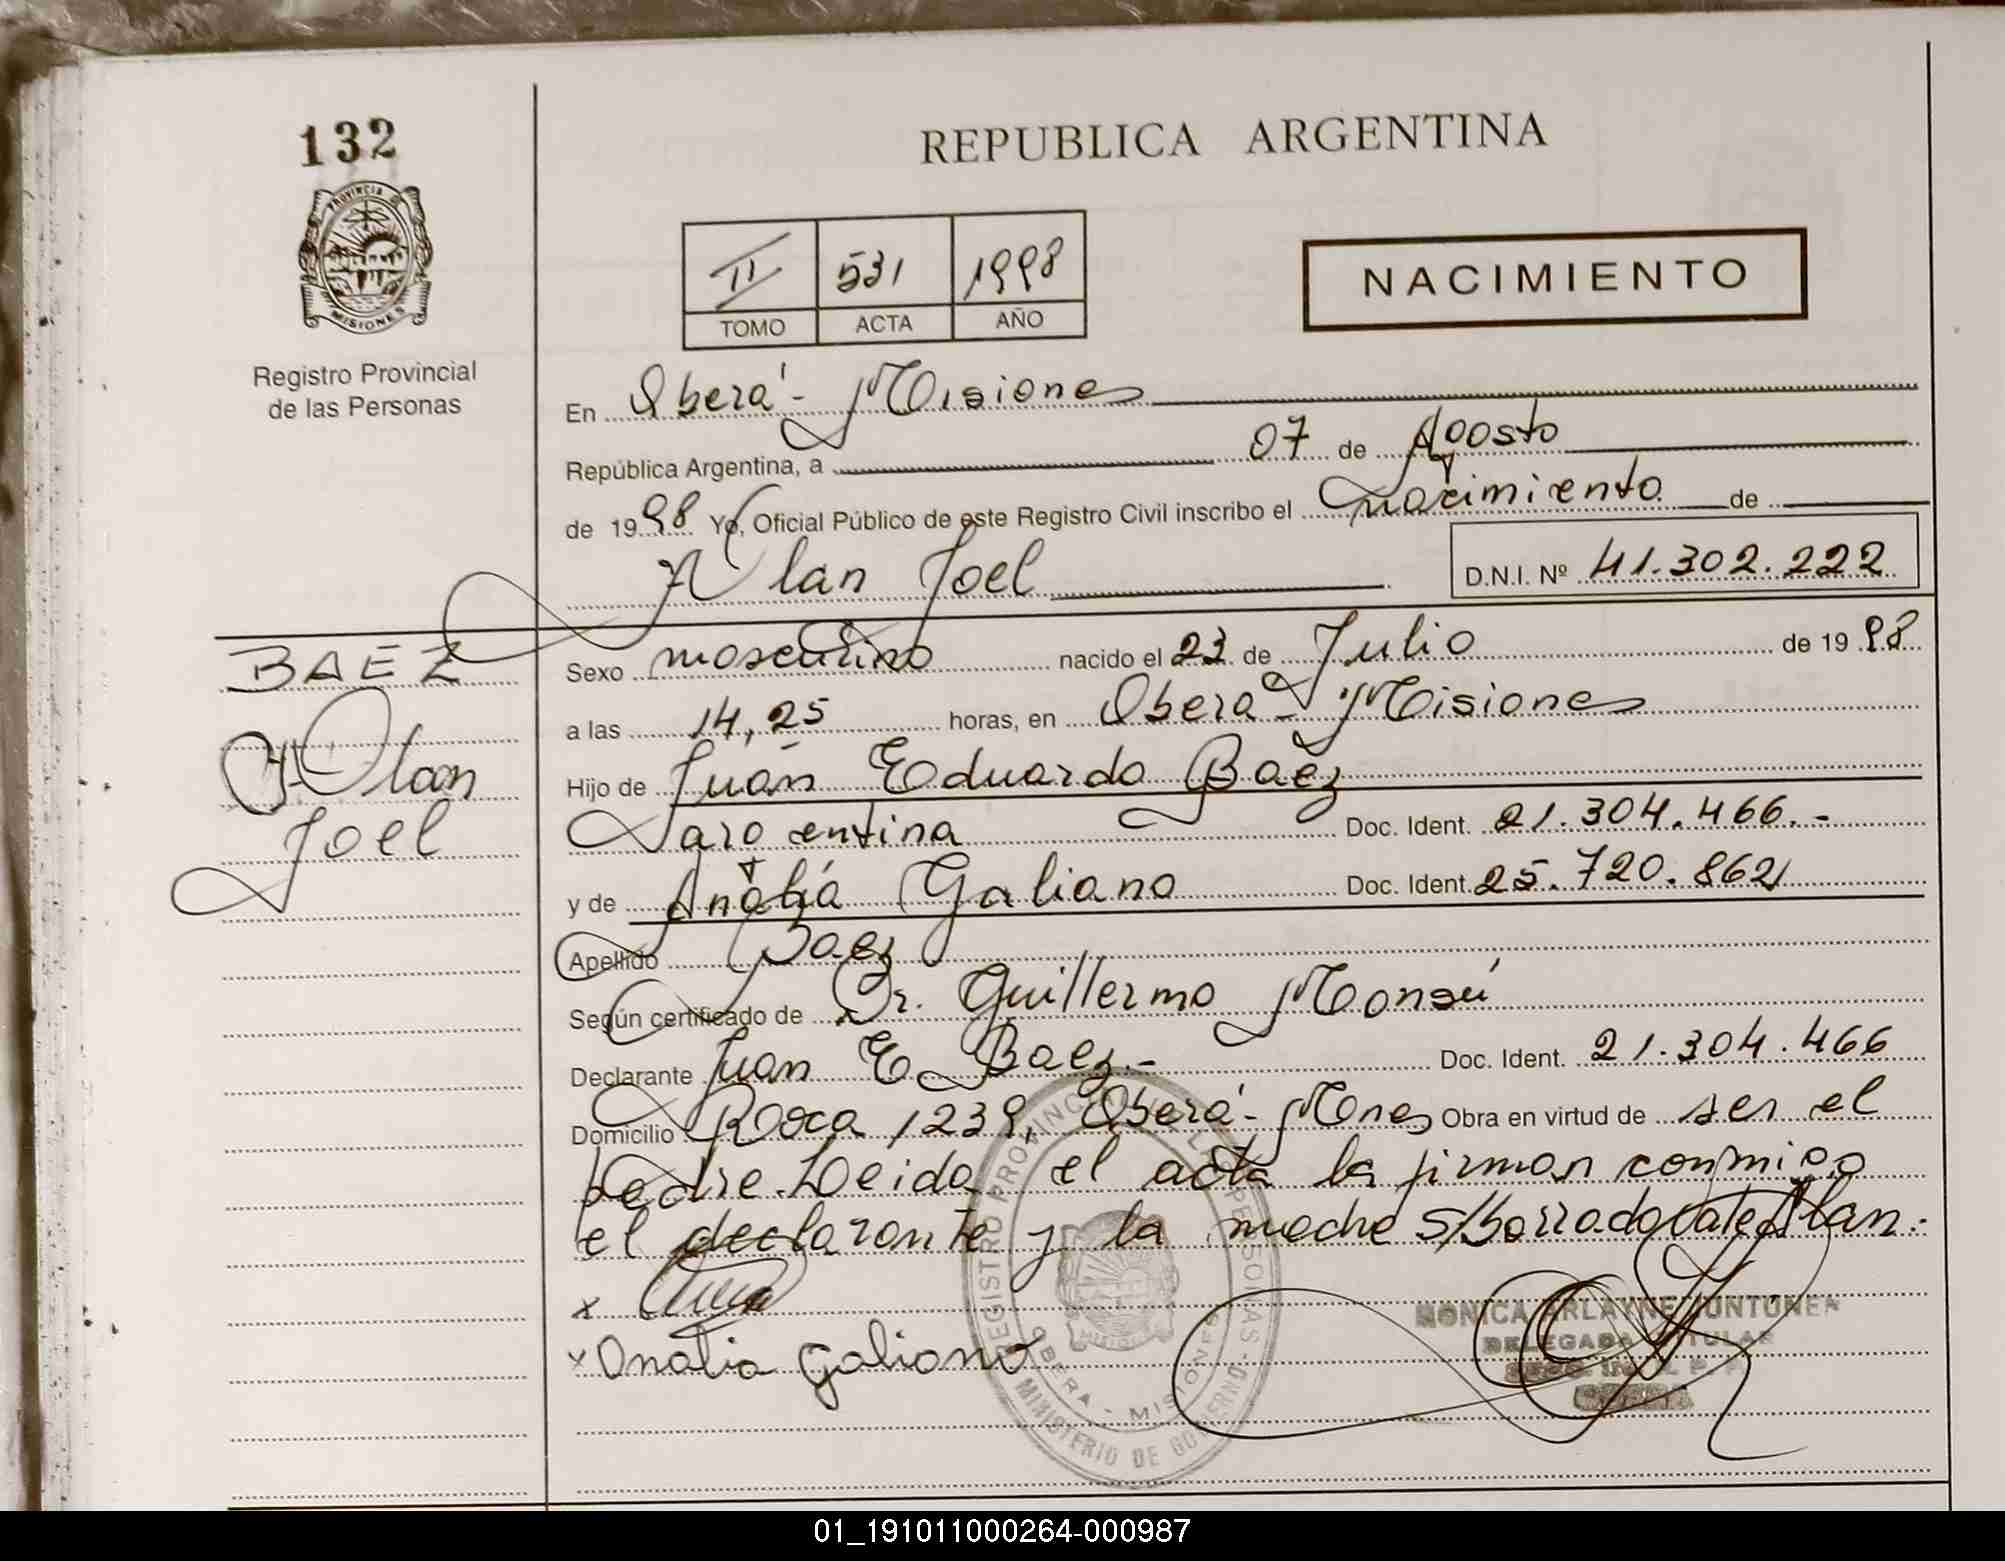 132
PROVINCIA
MISIONES
Registro Provincial
de las Personas
REPUBLICA ARGENTINA
II 531 1998
TOMO ACTA AÑO
NACIMIENTO
En Oberá - Misiones
República Argentina, a 07 de Agosto
de 1998 Yo, Oficial Público de este Registro Civil inscribo el nacimiento de
Alan Joel
D.N.I. Nº 41.302.222
BAEZ
Alan
Joel
Sexo masculino nacido el 23 de Julio de 1998
a las 14,25 horas, en Oberá - Misiones
Hijo de Juan Eduardo Baez
argentina Doc. Ident. 21.304.466.-
y de Analía Galiano Doc. Ident. 25.720.862
Apellido Baez
Según certificado de Dr. Guillermo Monsú
Declarante Juan E Baez.- Doc. Ident. 21.304.466
Domicilio Roca 1239, Oberá - Mnes Obra en virtud de ser el
padre. Leida el acta la firman conmigo
el declarante y la madre S/Borrado Vale Alan.-
x
x Analia Galiano
REGISTRO PROVINCIAL DE LAS PERSONAS - MINISTERIO DE GOBIERNO
OBERA - MISIONES
MONICA ARLAYNE JUNTUNEN
DELEGADA TITULAR
OBERA
01_191011000264-000987